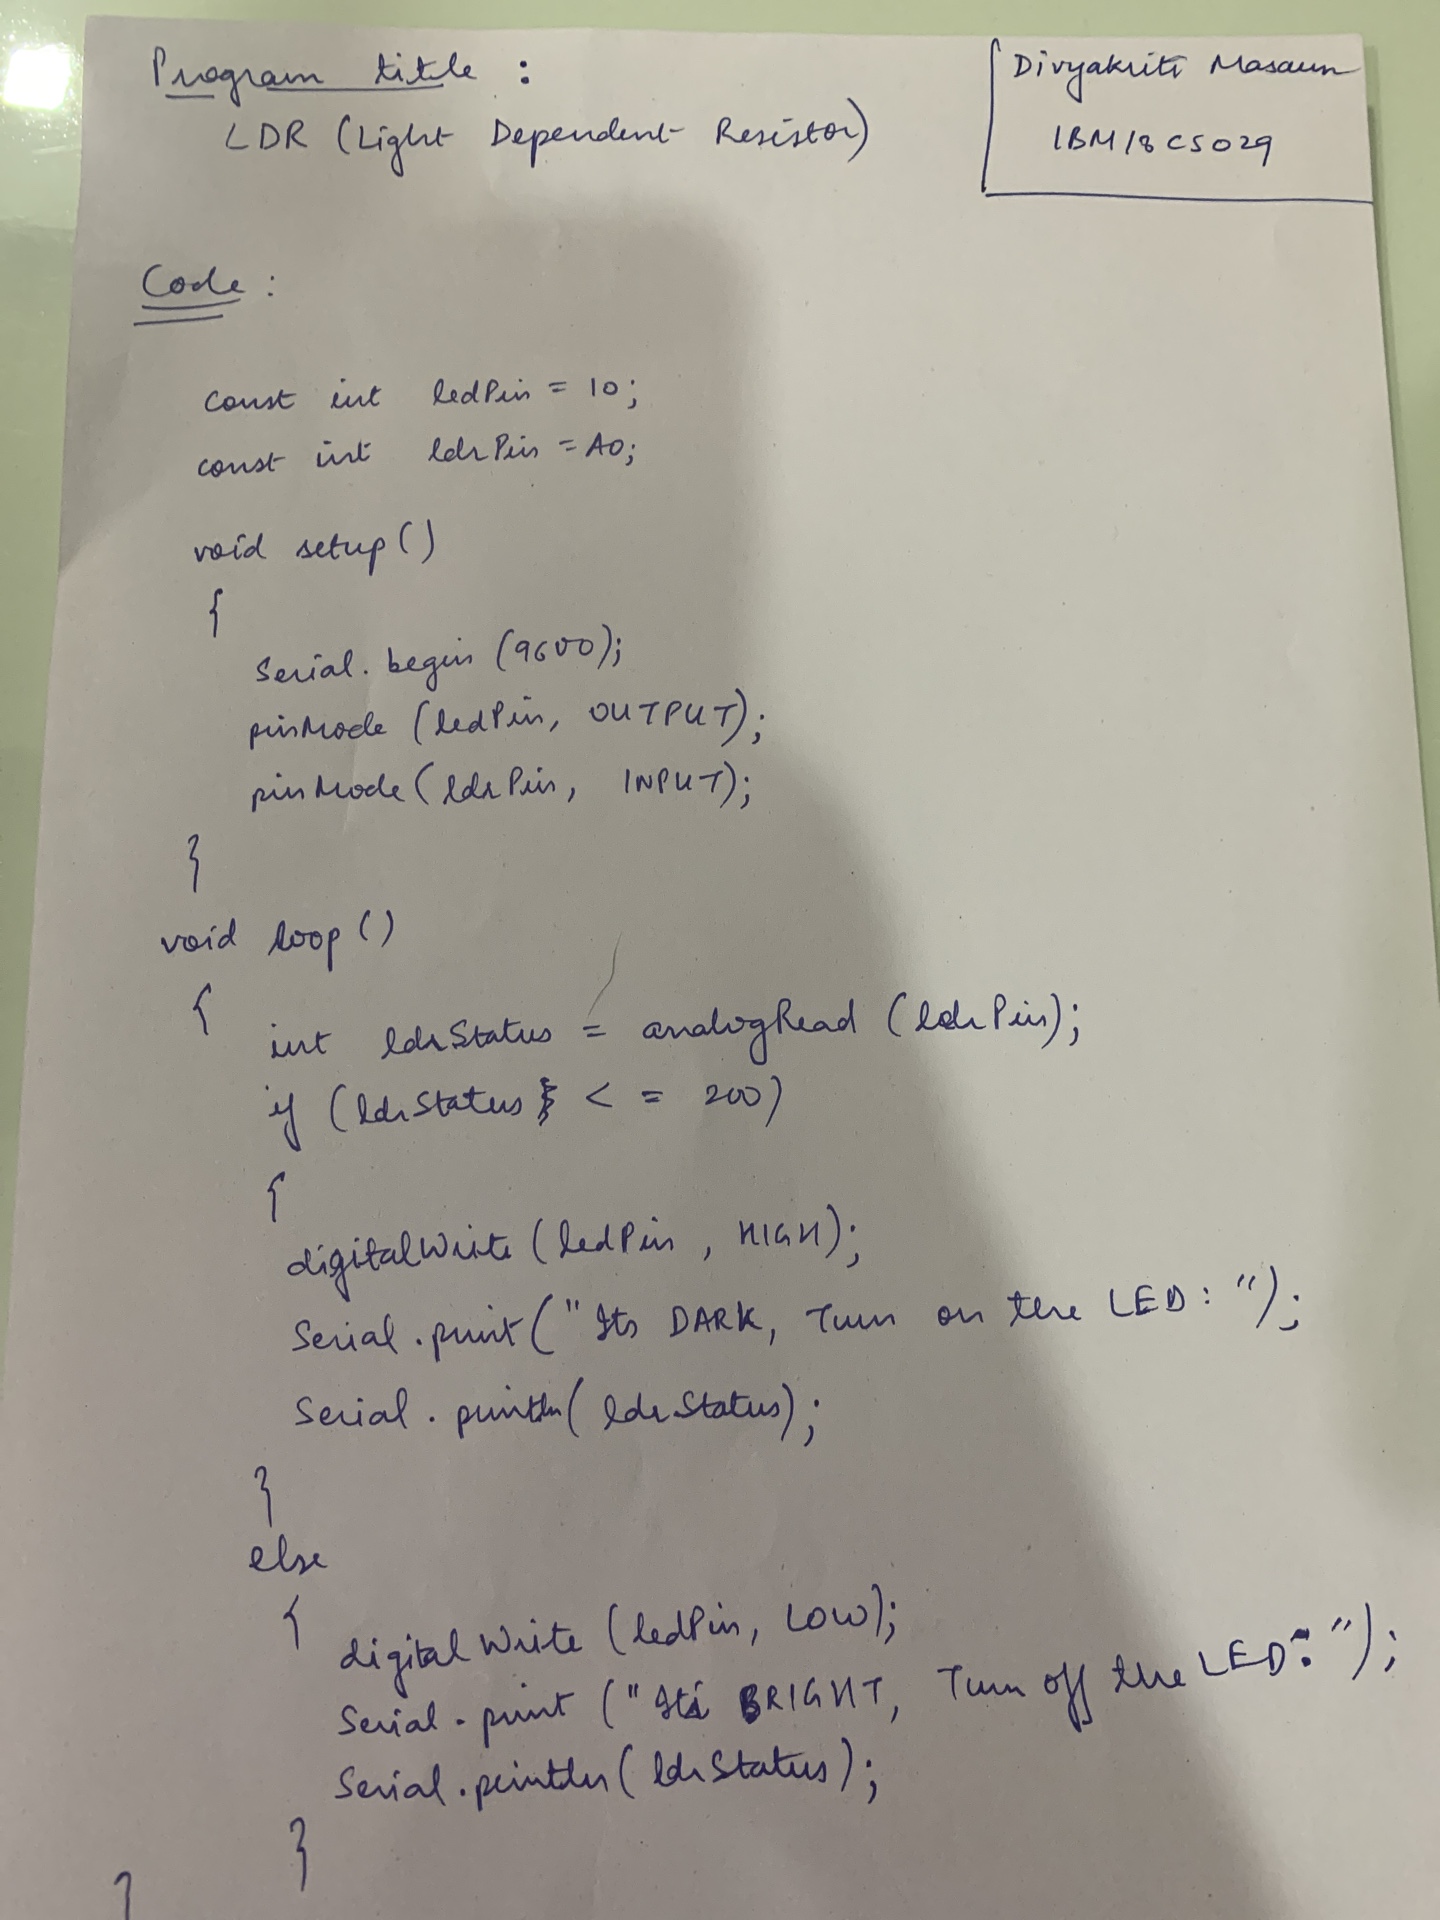 Program title :
LDR (Light Dependent Resistor)
Divyakriti Masaun
1BM18CS029
Code :
const int ledPin = 10;
const int ldrPin = A0;
void setup()
{
Serial.begin (9600);
pinMode (ledPin, OUTPUT);
pinMode (ldrPin, INPUT);
}
void loop()
{
int ldrStatus = analogRead (ldrPin);
if (ldrStatus < = 200)
{
digitalWrite (ledPin, HIGH);
Serial.print ("Its DARK, Turn on the LED: ");
Serial.println( ldrStatus);
}
else
{
digitalWrite (ledPin, LOW);
Serial.print ("Its BRIGHT, Turn off the LED: ");
Serial.println( ldrStatus);
}
}